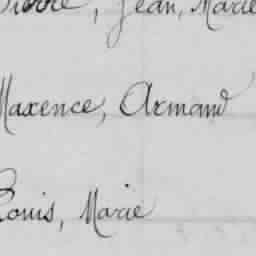 Pierre, Jean, Marie
Maxence, Armand
Louis, Marie